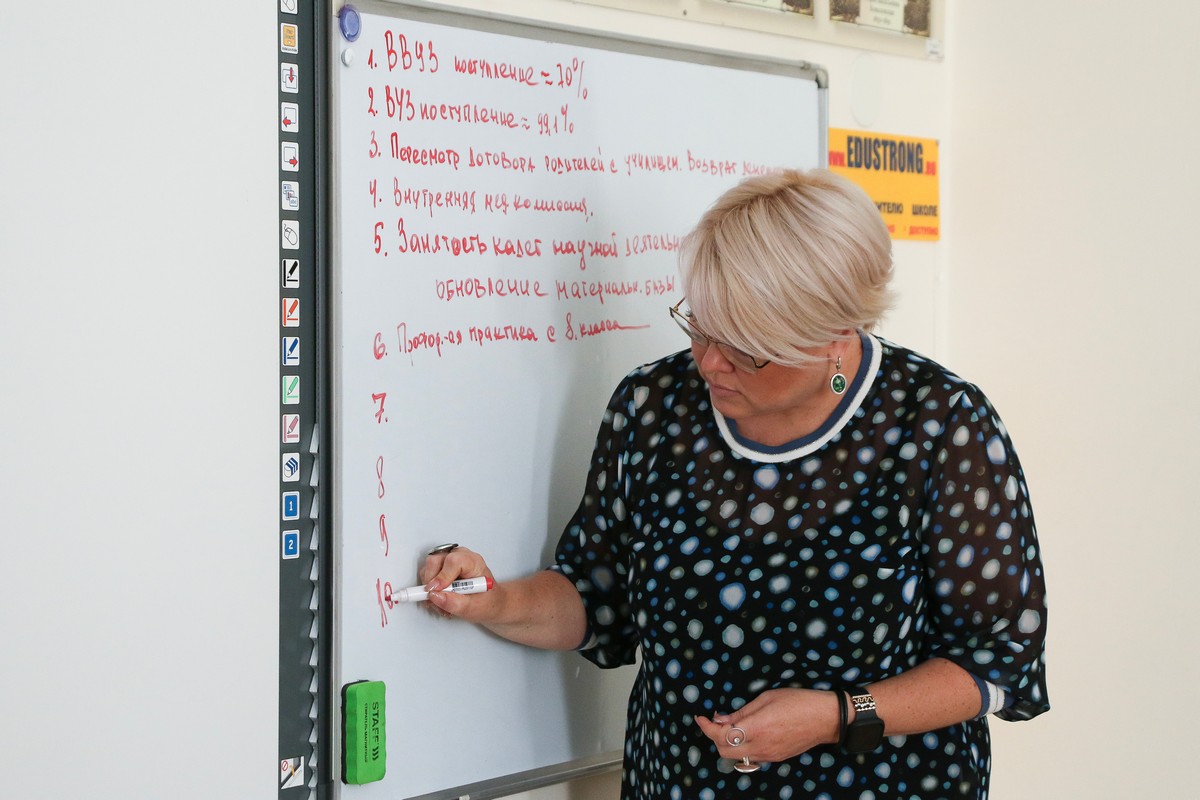 1. ВВУЗ поступление ≈ 70%
2. ВУЗ поступление ≈ 99,1%
3. Пересмотр договора родителей с училищем. Возврат
4. Внутренняя мед комиссия.
5. Занятость кадет научной
обновление материальн. базы
6. Профор-ая практика с 8. класса
7.
8
9
10.
EDUSTRONG
ШКОЛЕ
ДОСТУПНО
STAFF
1
2